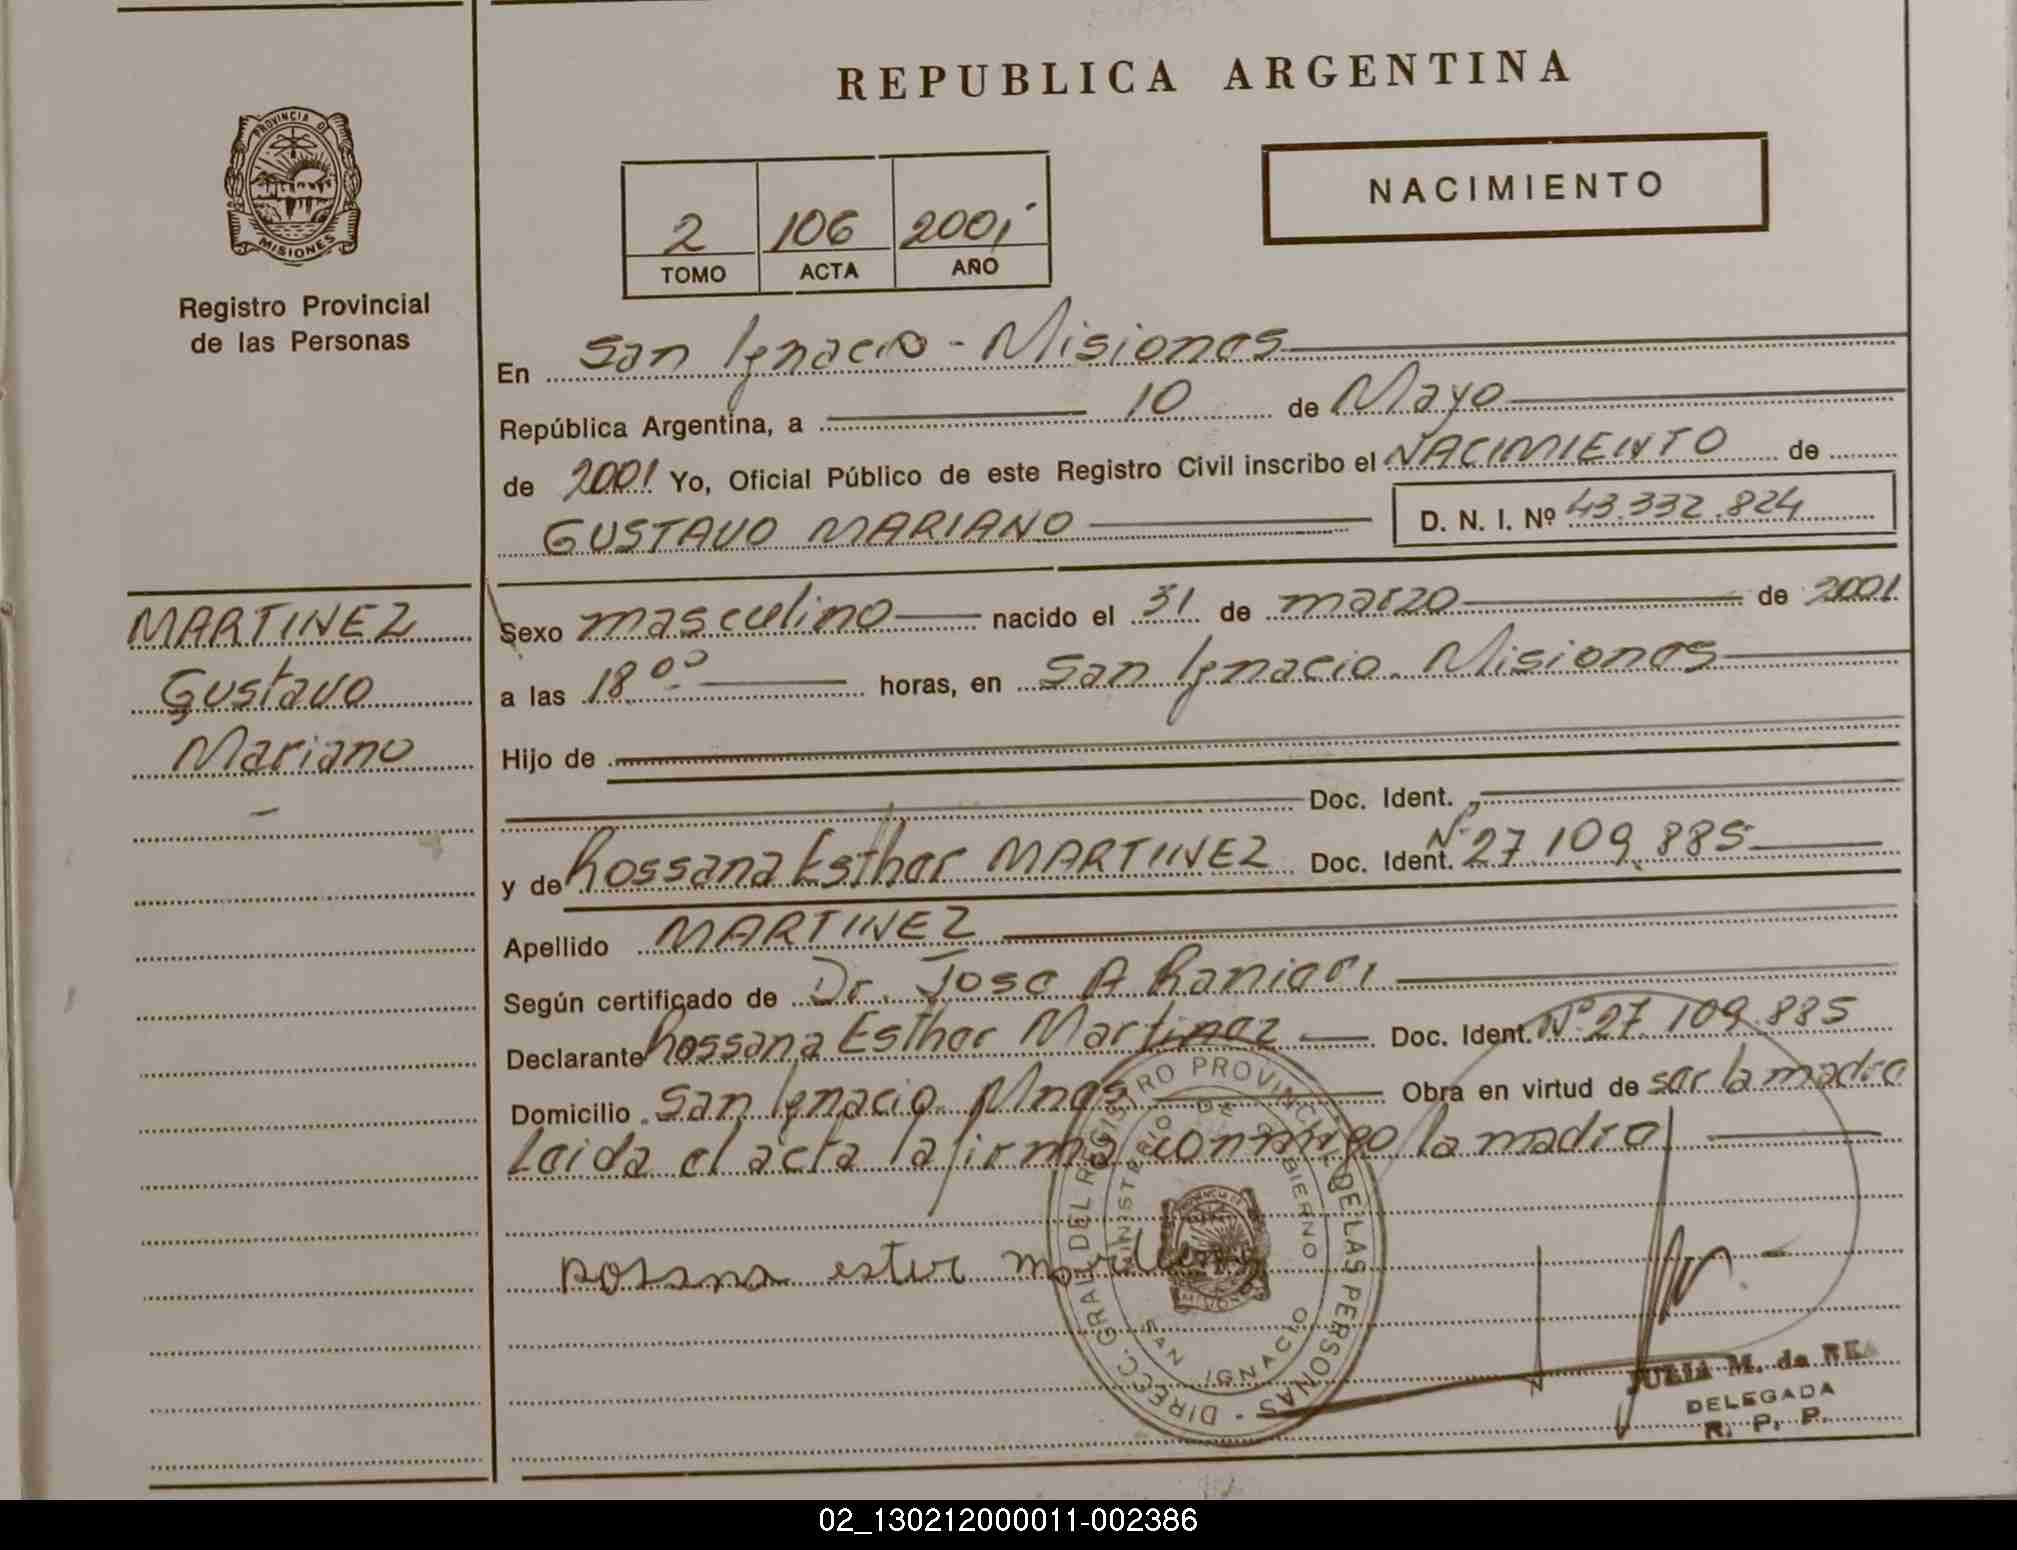 REPUBLICA ARGENTINA
PROVINCIA DE
MISIONES
Registro Provincial
de las Personas
NACIMIENTO
2 106 2001
TOMO ACTA AÑO
En San Ignacio - Misiones
República Argentina, a 10 de Mayo
de 2001 Yo, Oficial Público de este Registro Civil inscribo el NACIMIENTO de
GUSTAVO MARIANO D. N. I. Nº 43.332.824
MARTINEZ
Gustavo
Mariano
Sexo masculino nacido el 31 de marzo de 2001
a las 18 00 horas, en San Ignacio. Misiones
Hijo de
Doc. Ident.
y de Rossana Esther MARTINEZ Doc. Ident. Nº 27.109.885
Apellido MARTINEZ
Según certificado de Dr. Jose A
Declarante Rossana Esther Martinez Doc. Ident. Nº 27.109.885
Domicilio San Ignacio Mnes Obra en virtud de ser la madre
Leida el acta la firma conmigo la madre
rosana ester martinez
DIREC. GRAL DEL REGISTRO PROVINCIAL DE LAS PERSONAS
MINISTERIO DE GOBIERNO
SAN IGNACIO
JULIA M. de
DELEGADA
R. P. P.
02_130212000011-002386